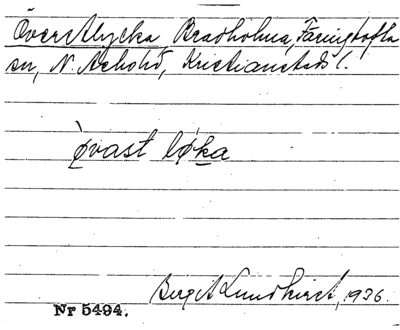 Överstlycka, Bradholma, Färingtofta
sn, N. Åsbohd, Kristianstads l.
òvast lø̀ka
Birgit Lundkvist, 1936.
Nr 5494.